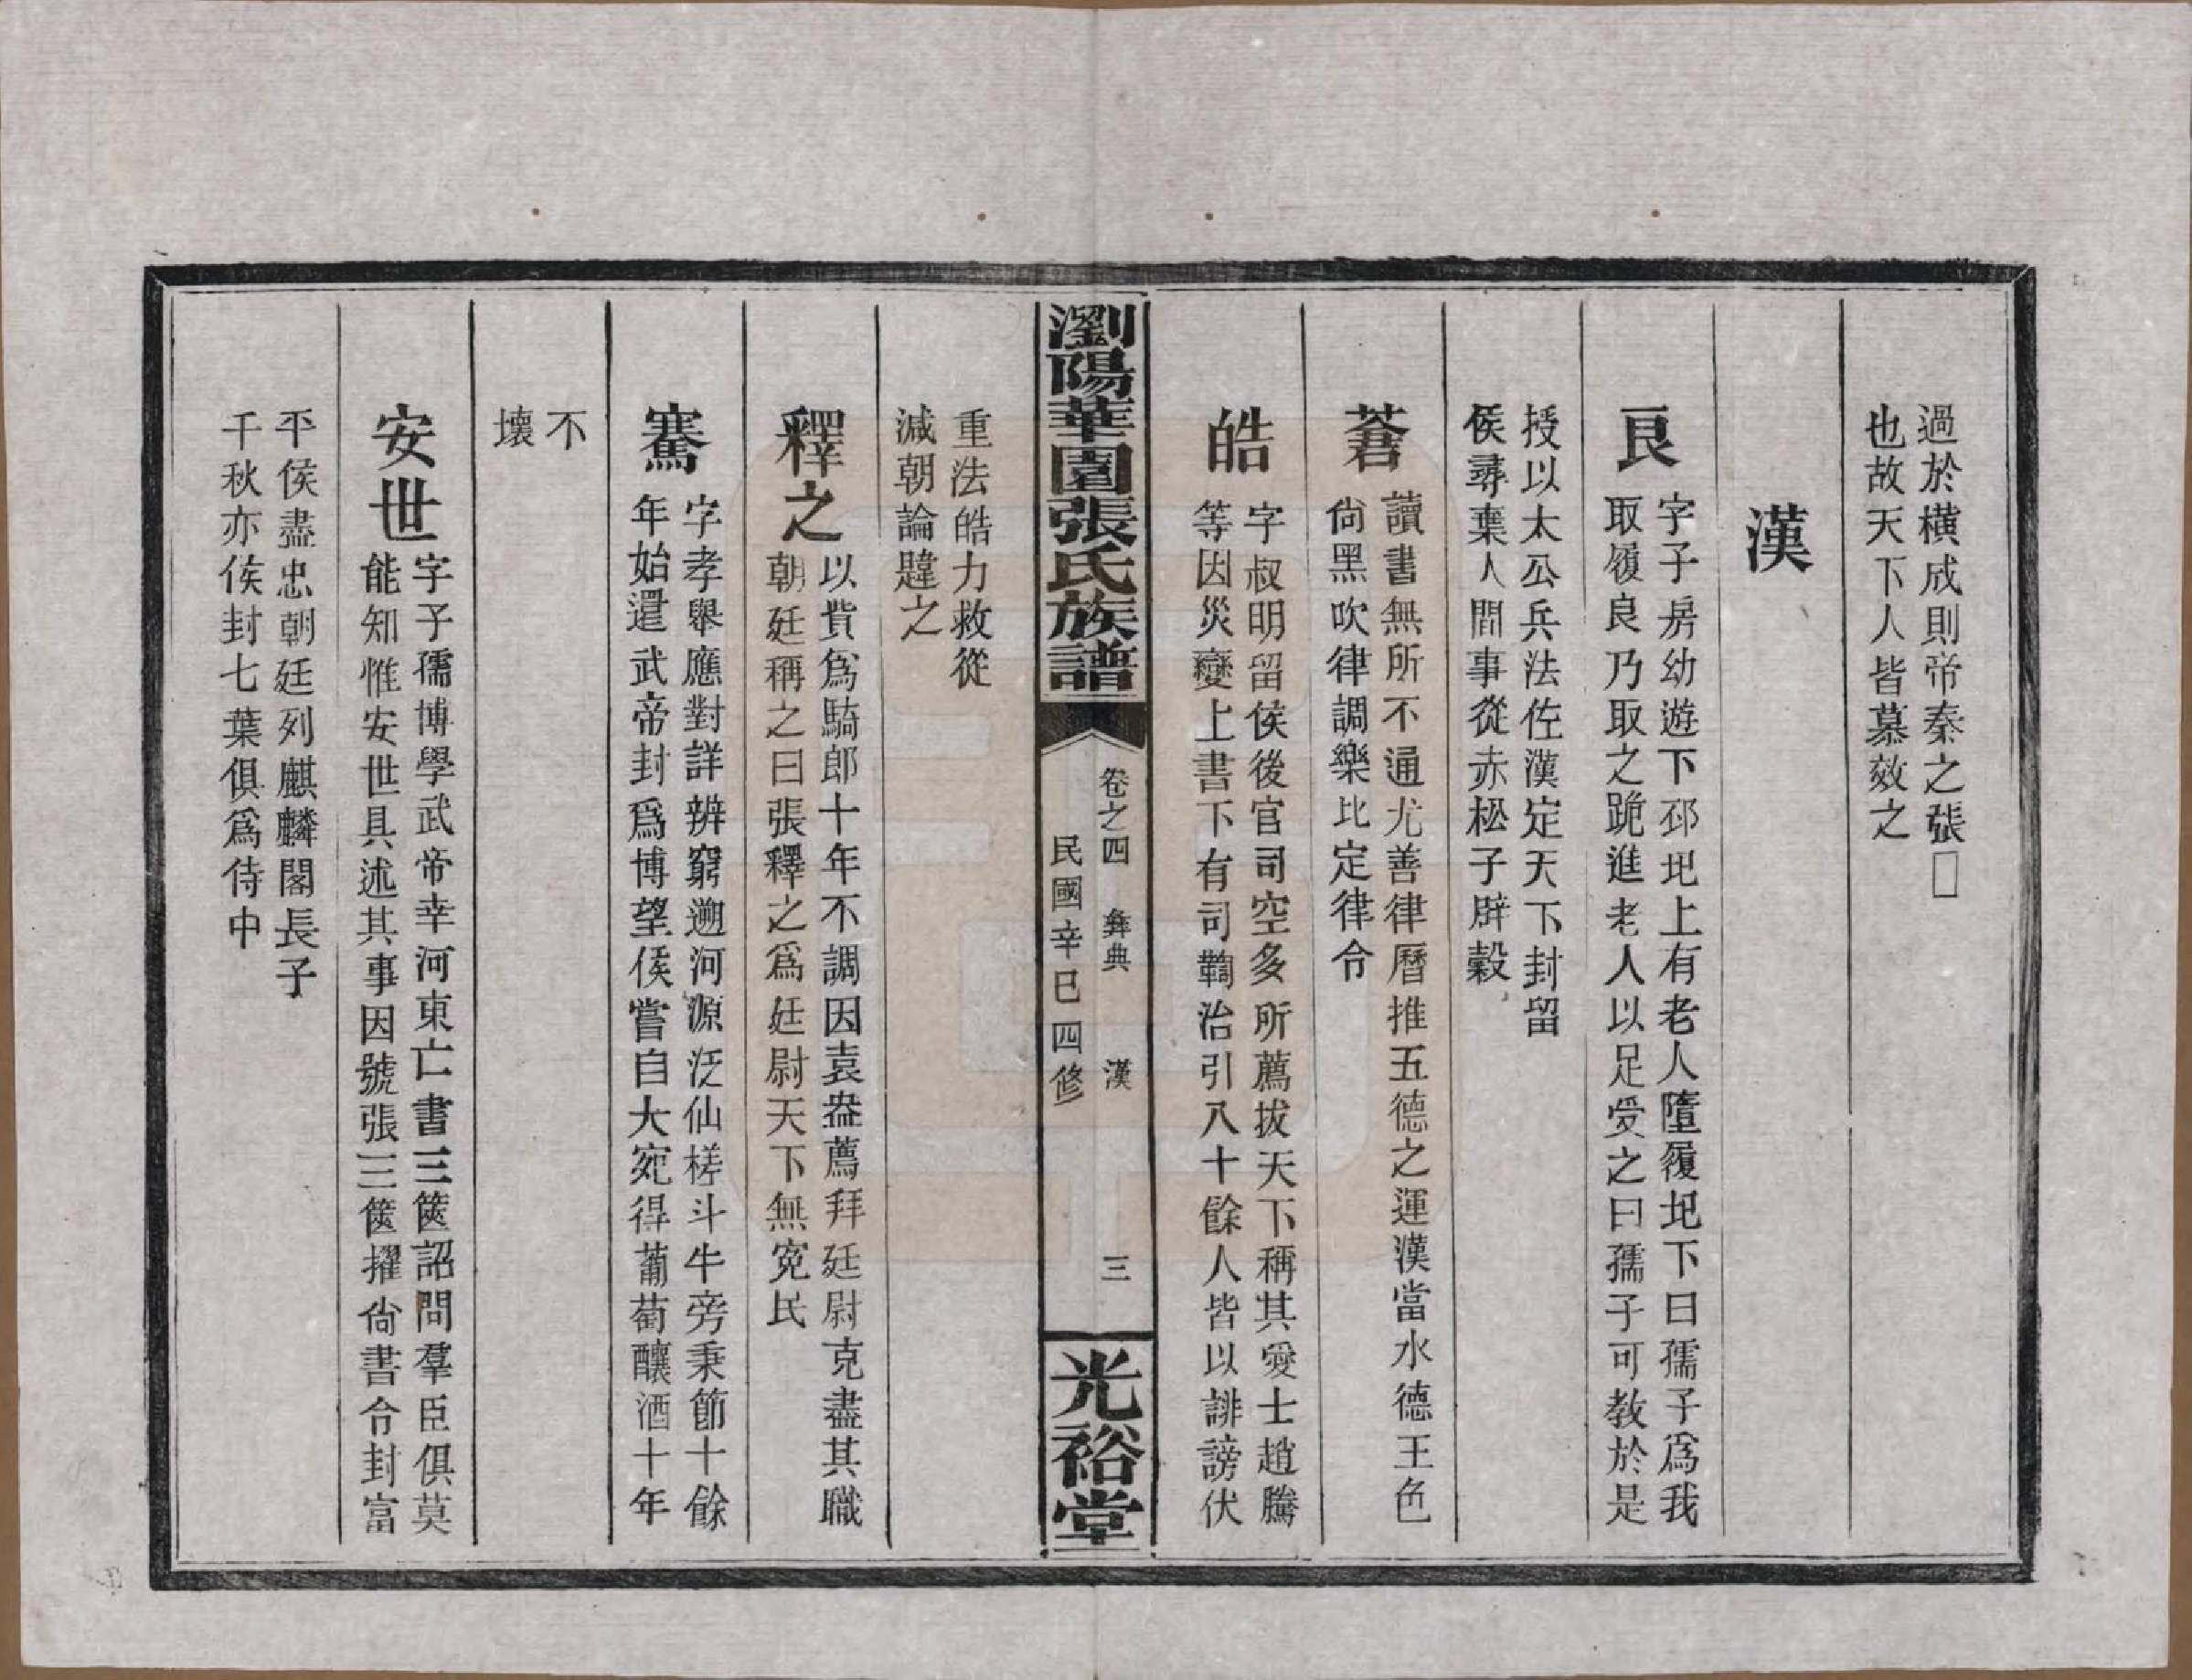 過於橫成則帝秦之張□
也故天下人皆慕效之
漢
良
字子房幼遊下邳圯上有老人墮履圯下曰孺子爲我
取履良乃取之跪進老人以足受之曰孺子可教於是
授以太公兵法佐漢定天下封留
侯尋棄人間事從赤松子辟穀
蒼
讀書無所不通尤善律曆推五德之運漢當水德王色
尙黑吹律調樂比定律令
皓
字叔明留侯後官司空多所薦拔天下稱其愛士趙騰
等因災變上書下有司鞫治引八十餘人皆以誹謗伏
瀏陽華園張氏族譜
卷之四 彝典 漢 三
民國辛巳四修
光裕堂
重法皓力救從
減朝論韙之
釋之
以貲爲騎郎十年不調因袁盎薦拜廷尉克盡其職
朝廷稱之曰張釋之爲廷尉天下無冤民
騫
字孝舉應對詳辨窮遡河源泛仙槎斗牛旁秉節十餘
年始還武帝封爲博望侯嘗自大宛得葡萄釀酒十年
不
壞
安世
字子孺博學武帝幸河東亡書三篋詔問羣臣俱莫
能知惟安世具述其事因號張三篋擢尙書令封富
平侯盡忠朝廷列麒麟閣長子
千秋亦侯封七葉俱爲侍中